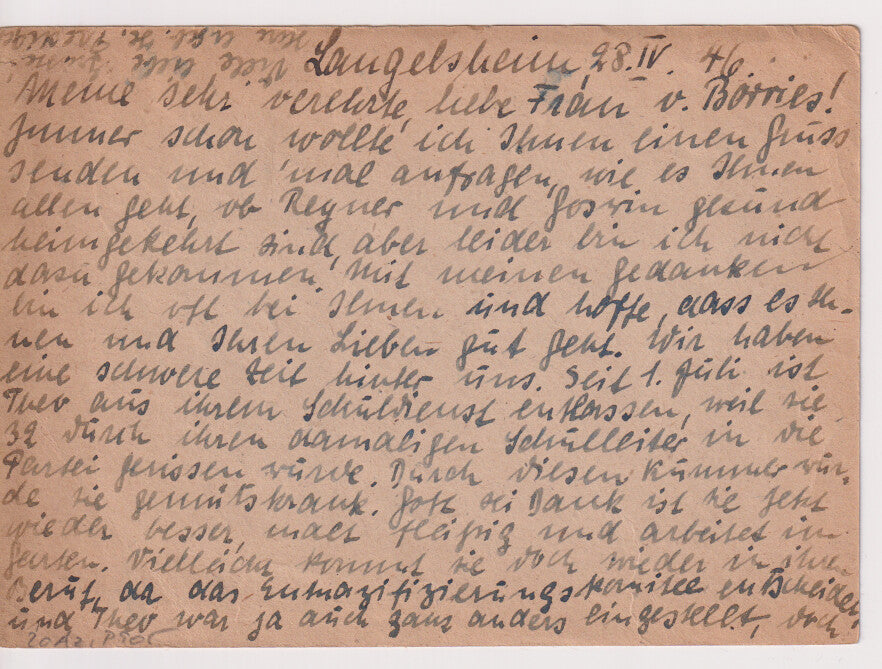 Langelsheim, 28. IV. 46.
Meine sehr verehrte, liebe Frau v. Börries!
Immer schon wollte ich Ihnen einen Gruss
senden und 'mal anfragen, wie es Ihnen
allen geht, ob Regner und Goswin gesund
heimgekehrt sind, aber leider bin ich nicht
dazu gekommen. Mit meinen Gedanken
bin ich oft bei Ihnen und hoffe, dass es Ih-
nen und Ihren Lieben gut geht. Wir haben
eine schwere Zeit hinter uns. Seit 1. Juli ist
Theo aus ihrem Schuldienst entlassen, weil sie
32 durch ihren damaligen Schulleiter in die
Partei gerissen wurde. Durch diesen Kummer wur-
de sie gemütskrank. Gott sei Dank ist sie jetzt
wieder besser, malt fleißig und arbeitet im
Garten. Vielleicht kommt sie doch wieder in ihren
Beruf, da das Entnazifizierungskomitee entscheidet,
und Theo war ja auch ganz anders eingestellt, doch
Viele liebe Grüße